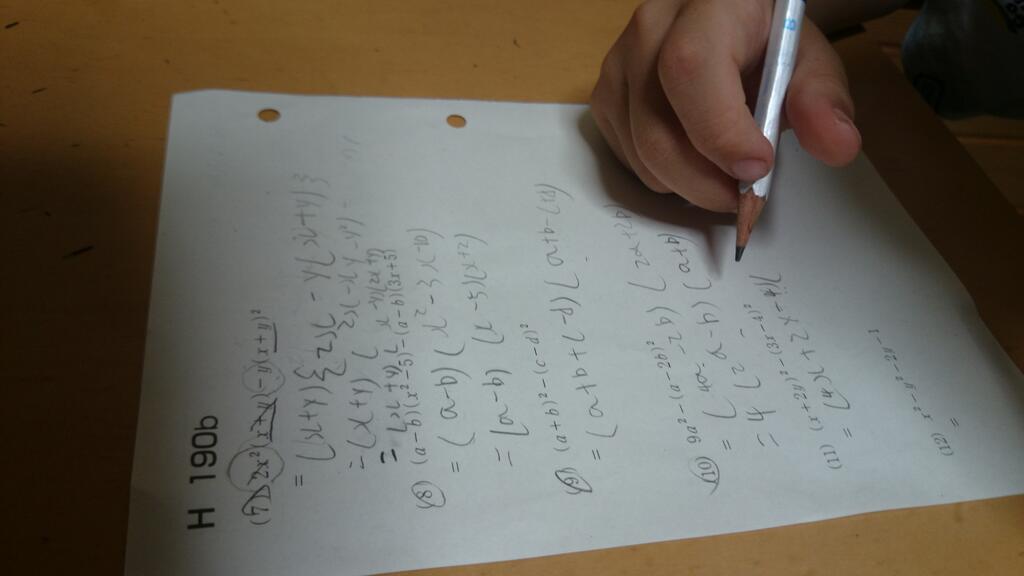 H 190b
(7) 2x²(x+y)-y(x+y)²
= (x+y){2x²-y(x+y)}
= (x+y)(2x²-xy-y²)
= (x+y)(x-y)(2x+y)
(8) (a-b)(x²-5)-(a-b)(3x+5)
= (a-b)(x²-3x-10)
= (a-b)(x-5)(x+2)
(9) (a+b)²-(c-d)²
= (a+b+c-d)(a+b-c+d)
(10) 9a²-(a-2b)²
= (4a-2b)(2a+2b)
= 4(2a-b)(a+b)
(11) (x+2y)²-(3x-4)²
= (4x+2y-4)(
(12) x²-y²-2y-1
=